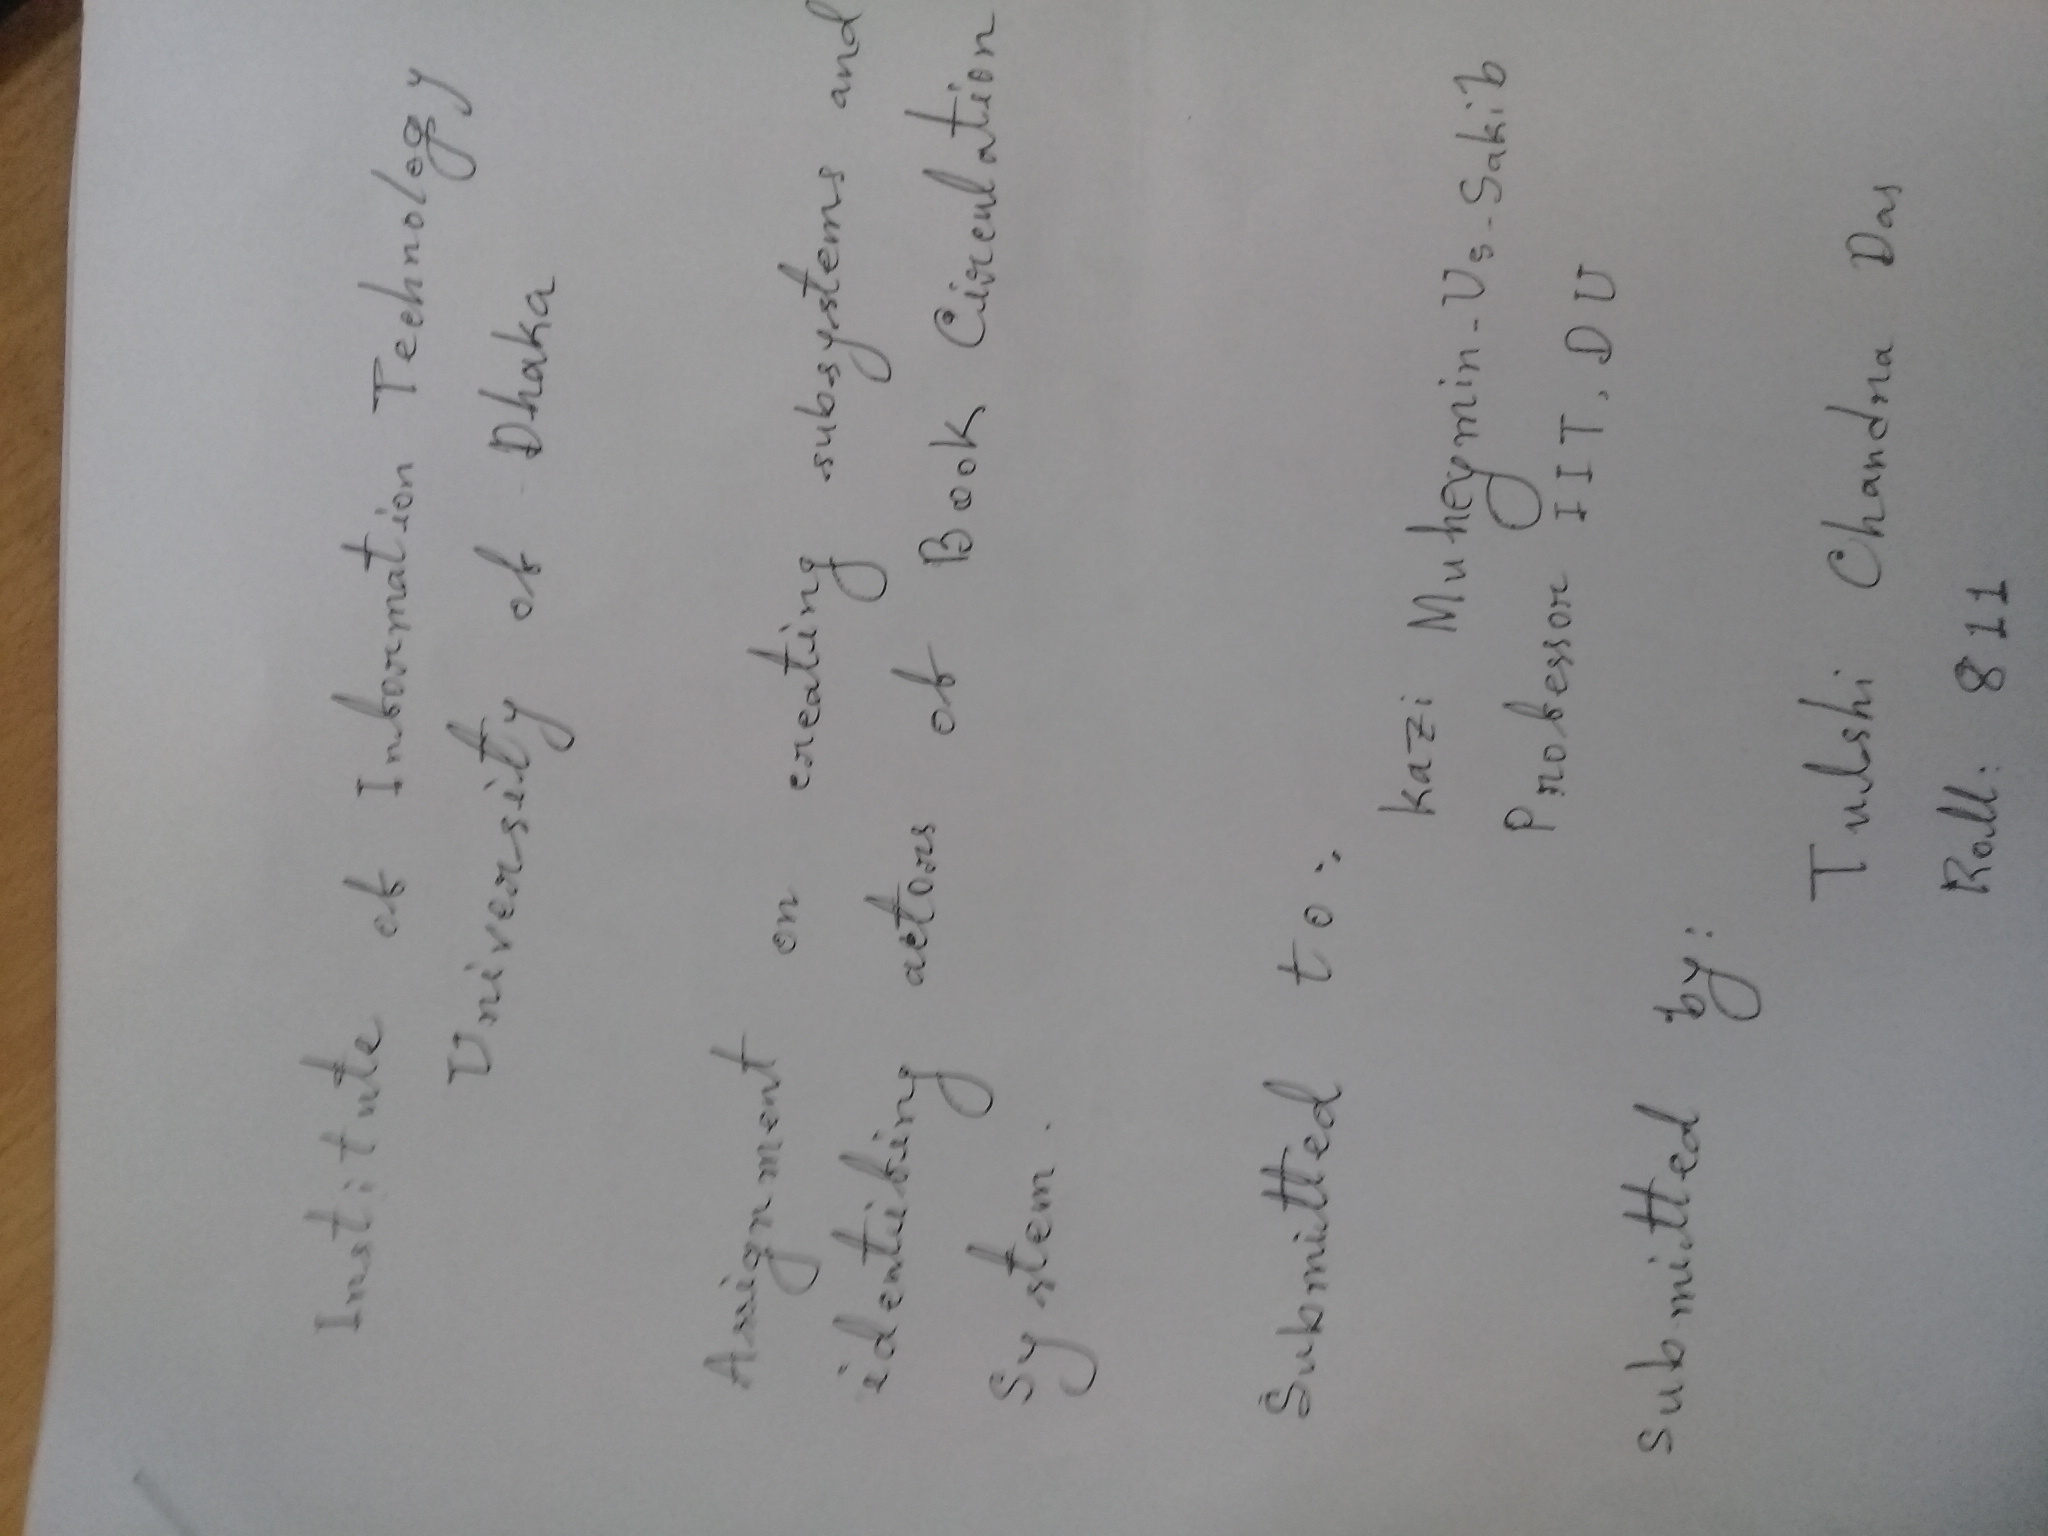 Institute of Information Technology
University of Dhaka
Assignment on creating subsystems and
identifing actors of Book Circulation
System.
Submitted to:
Kazi Muheymin-Us-Sakib
Professor IIT, DU
Submitted by:
Tulshi Chandra Das
Roll: 811